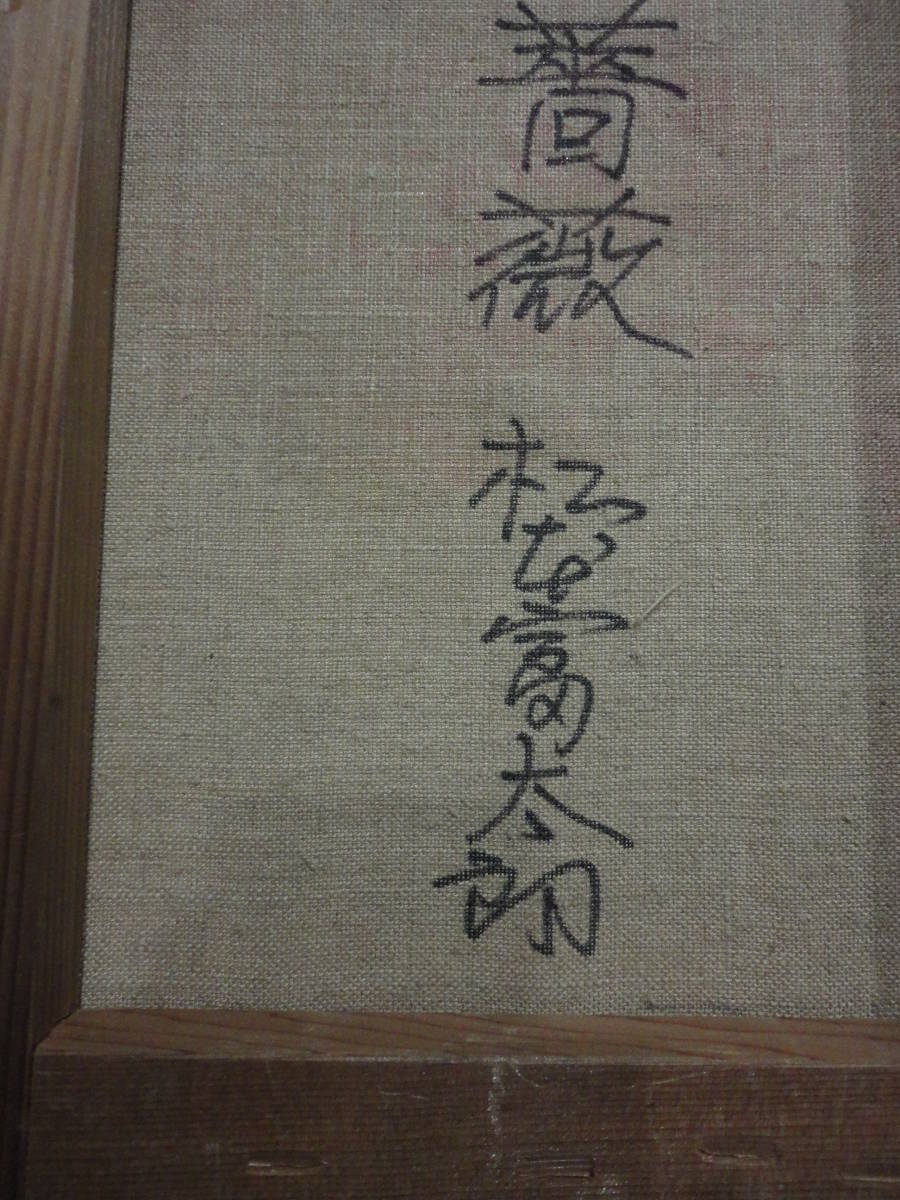 薔薇 松本富太郎